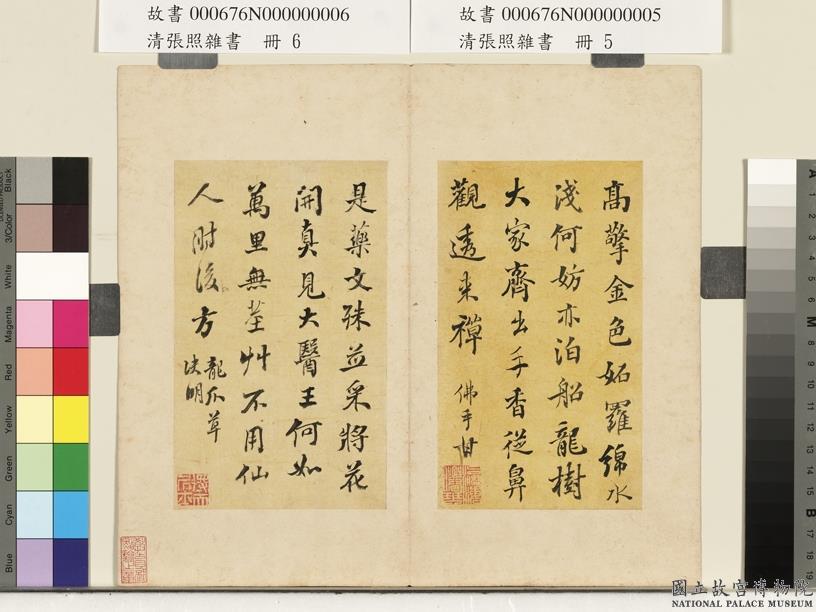 故書 000676N000000006
清張照雜書　冊 6
故書 000676N000000005
清張照雜書　冊 5
高擎金色妬羅綿水
淺何妨亦泊船龍樹
大家齊出手香從鼻
觀透来禪
佛手甘
是藥文殊並采將花
開真見大醫王何如
萬里無茎艸不用仙
人肘後方
龍爪草
決明
國立故宮博物院
NATIONAL PALACE MUSEUM
Black
3/Color
White
Magenta
Red
Yellow
Green
Cyan
Blue
A
1
2
3
4
5
6
M
8
9
10
11
12
13
14
15
B
17
18
19